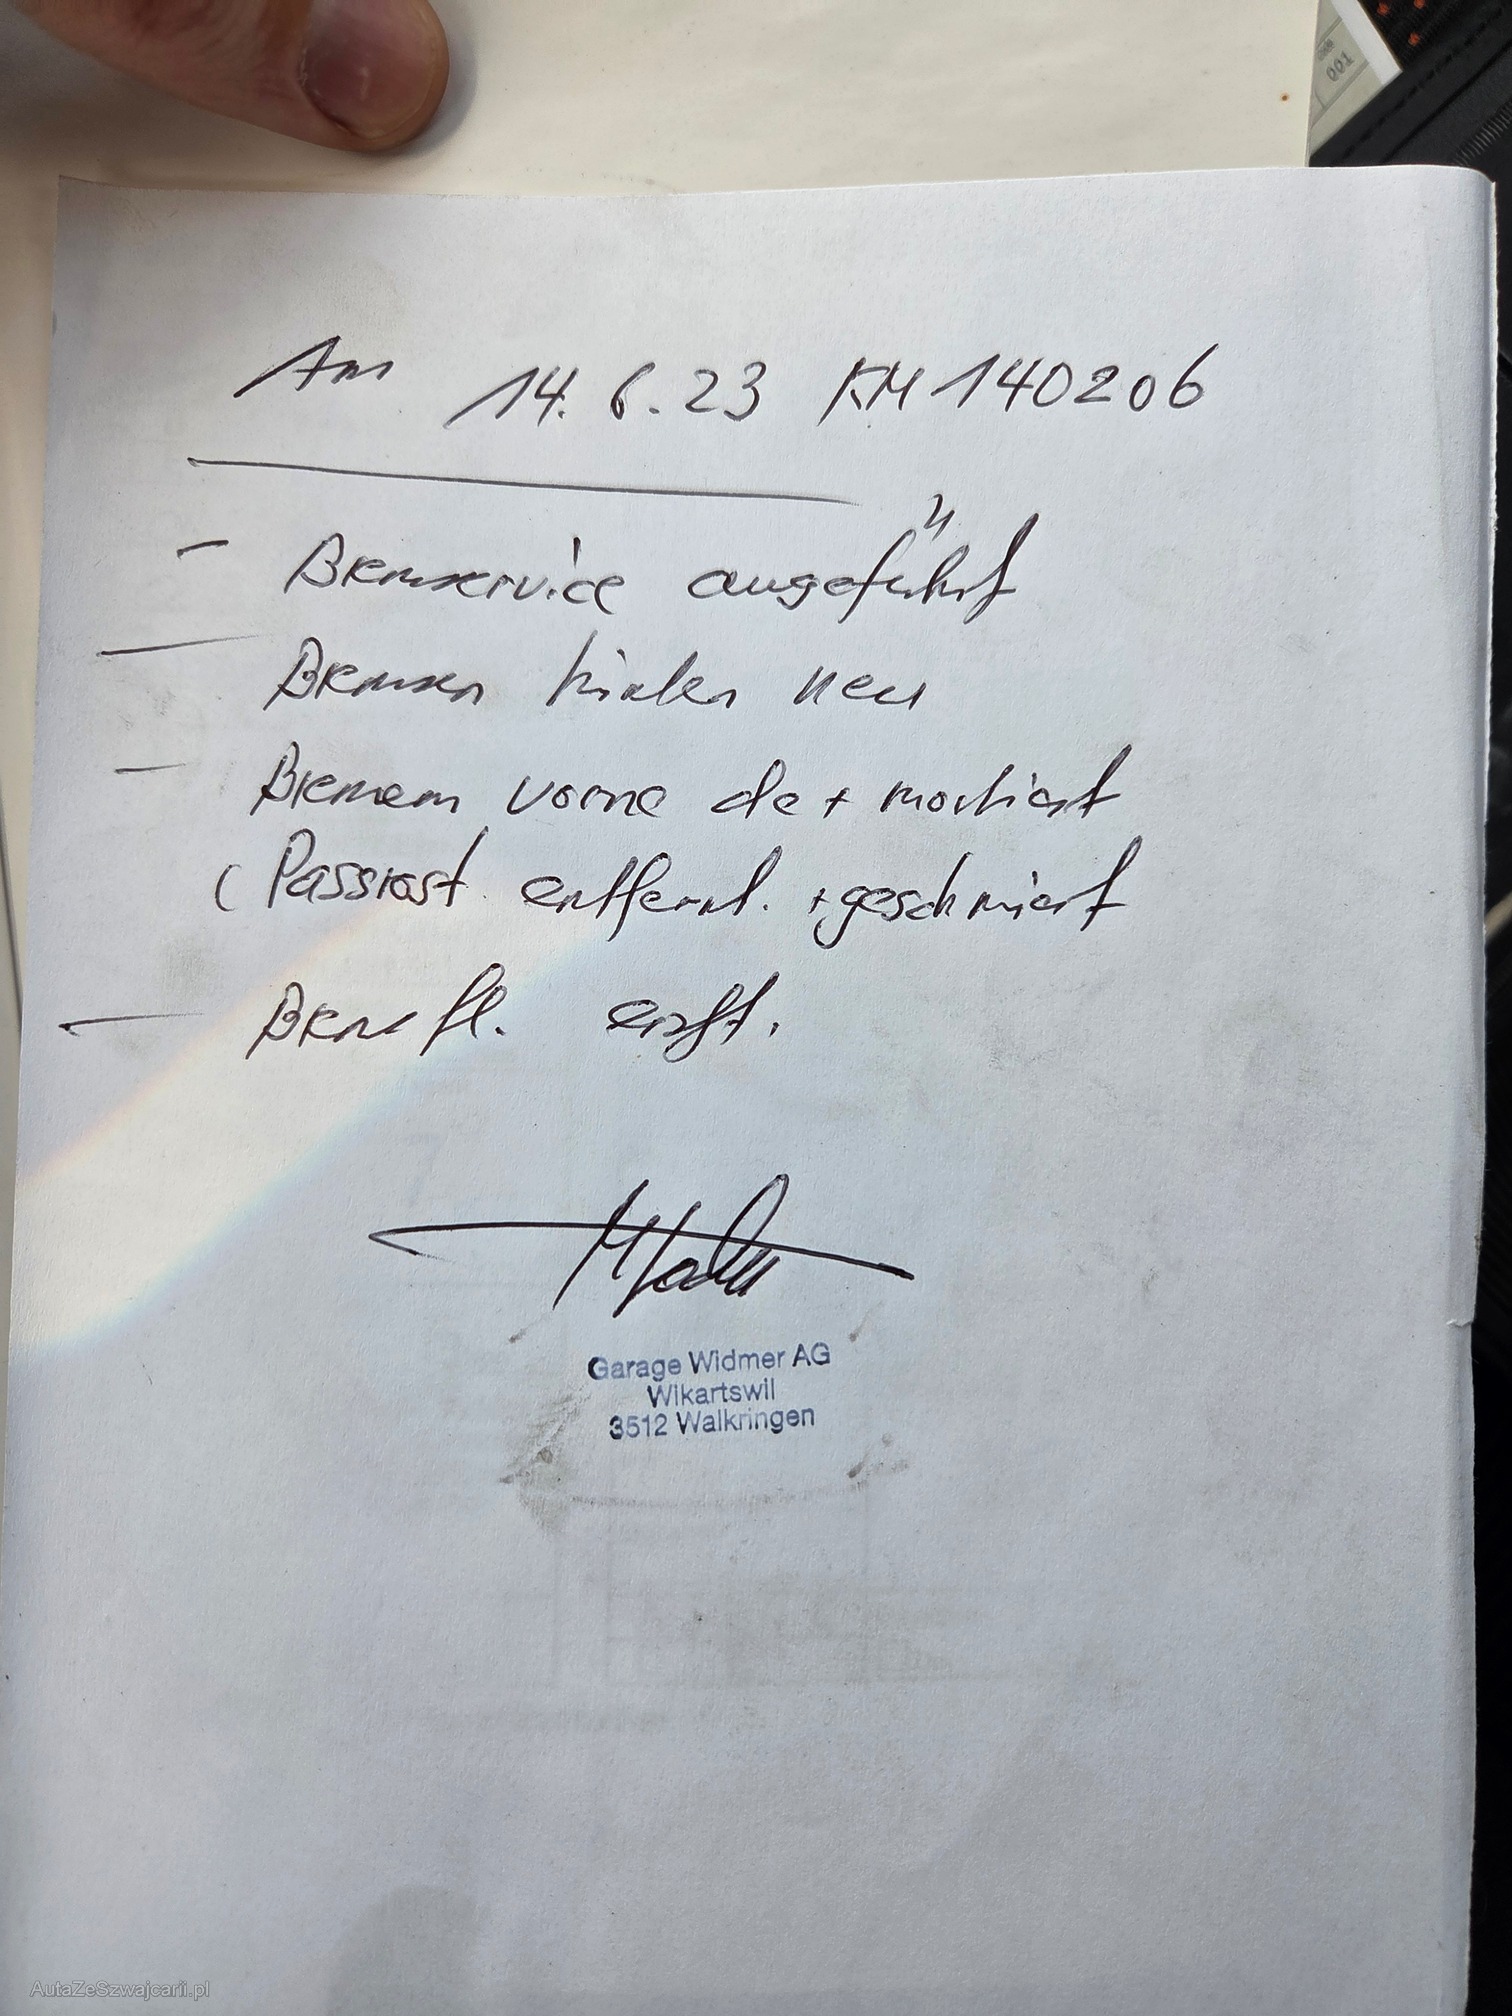 Am 14.6.23 KM 140206
- Bremservice ausgeführt
- Bremsen hinten neu
- Bremsen vorne de + montiert
( Passrost entfernt. + geschmiert
- Brems fl. ersft.
Garage Widmer AG
Wikartswil
3512 Walkringen
001
AutaZeSzwajcarii.pl